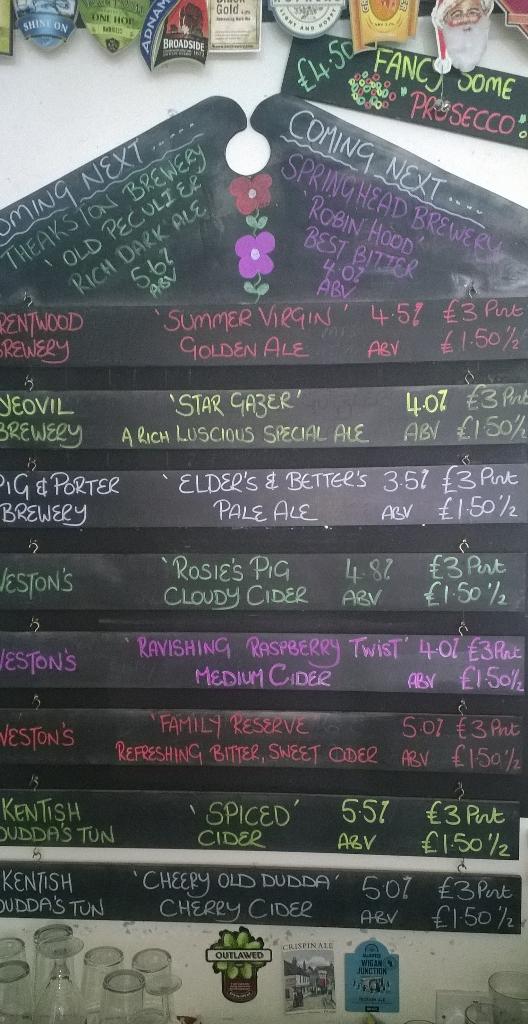 SHINE ON
ONE HOP
ADNAMS
BROADSIDE
Gold
£4.50
FANCY SOME
PROSECCO
OMING NEXT.....
THEAKSTON BREWERY
'OLD PECULIER'
RICH DARK ALE
5.6%
ABV
COMING NEXT....
SPRINGHEAD BREWERY
'ROBIN HOOD'
BEST BITTER
4.0%
ABV
RENTWOOD 'SUMMER VIRGIN' 4.5% £3 Pint
BREWERY GOLDEN ALE ABV £1.50 1/2
YEOVIL 'STAR GAZER' 4.0% £3 Pint
BREWERY A RICH LUSCIOUS SPECIAL ALE ABV £1.50 1/2
PIG & PORTER 'ELDER'S & BETTER'S 3.5% £3 Pint
BREWERY PALE ALE ABV £1.50 1/2
WESTON'S 'ROSIE'S PIG 4.8% £3 Pint
CLOUDY CIDER ABV £1.50 1/2
WESTON'S 'RAVISHING RASPBERRY TWIST' 4.0% £3 Pint
MEDIUM CIDER ABV £1.50 1/2
WESTON'S 'FAMILY RESERVE 5.0% £3 Pint
REFRESHING BITTER, SWEET CIDER ABV £1.50 1/2
KENTISH 'SPICED' 5.5% £3 Pint
DUDDA'S TUN CIDER ABV £1.50 1/2
KENTISH 'CHEERY OLD DUDDA' 5.0% £3 Pint
DUDDA'S TUN CHERRY CIDER ABV £1.50 1/2
OUTLAWED
CRISPIN ALE
WIGAN
JUNCTION